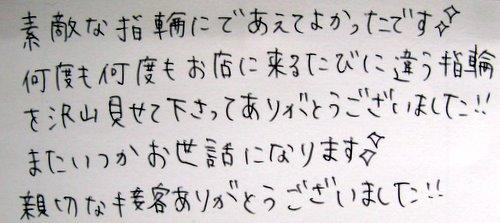 素敵な指輪にであえてよかったです✧
何度も何度もお店に来るたびに違う指輪
を沢山見せて下さってありがとうございました!!
またいつかお世話になります✧
親切な接客ありがとうございました!!